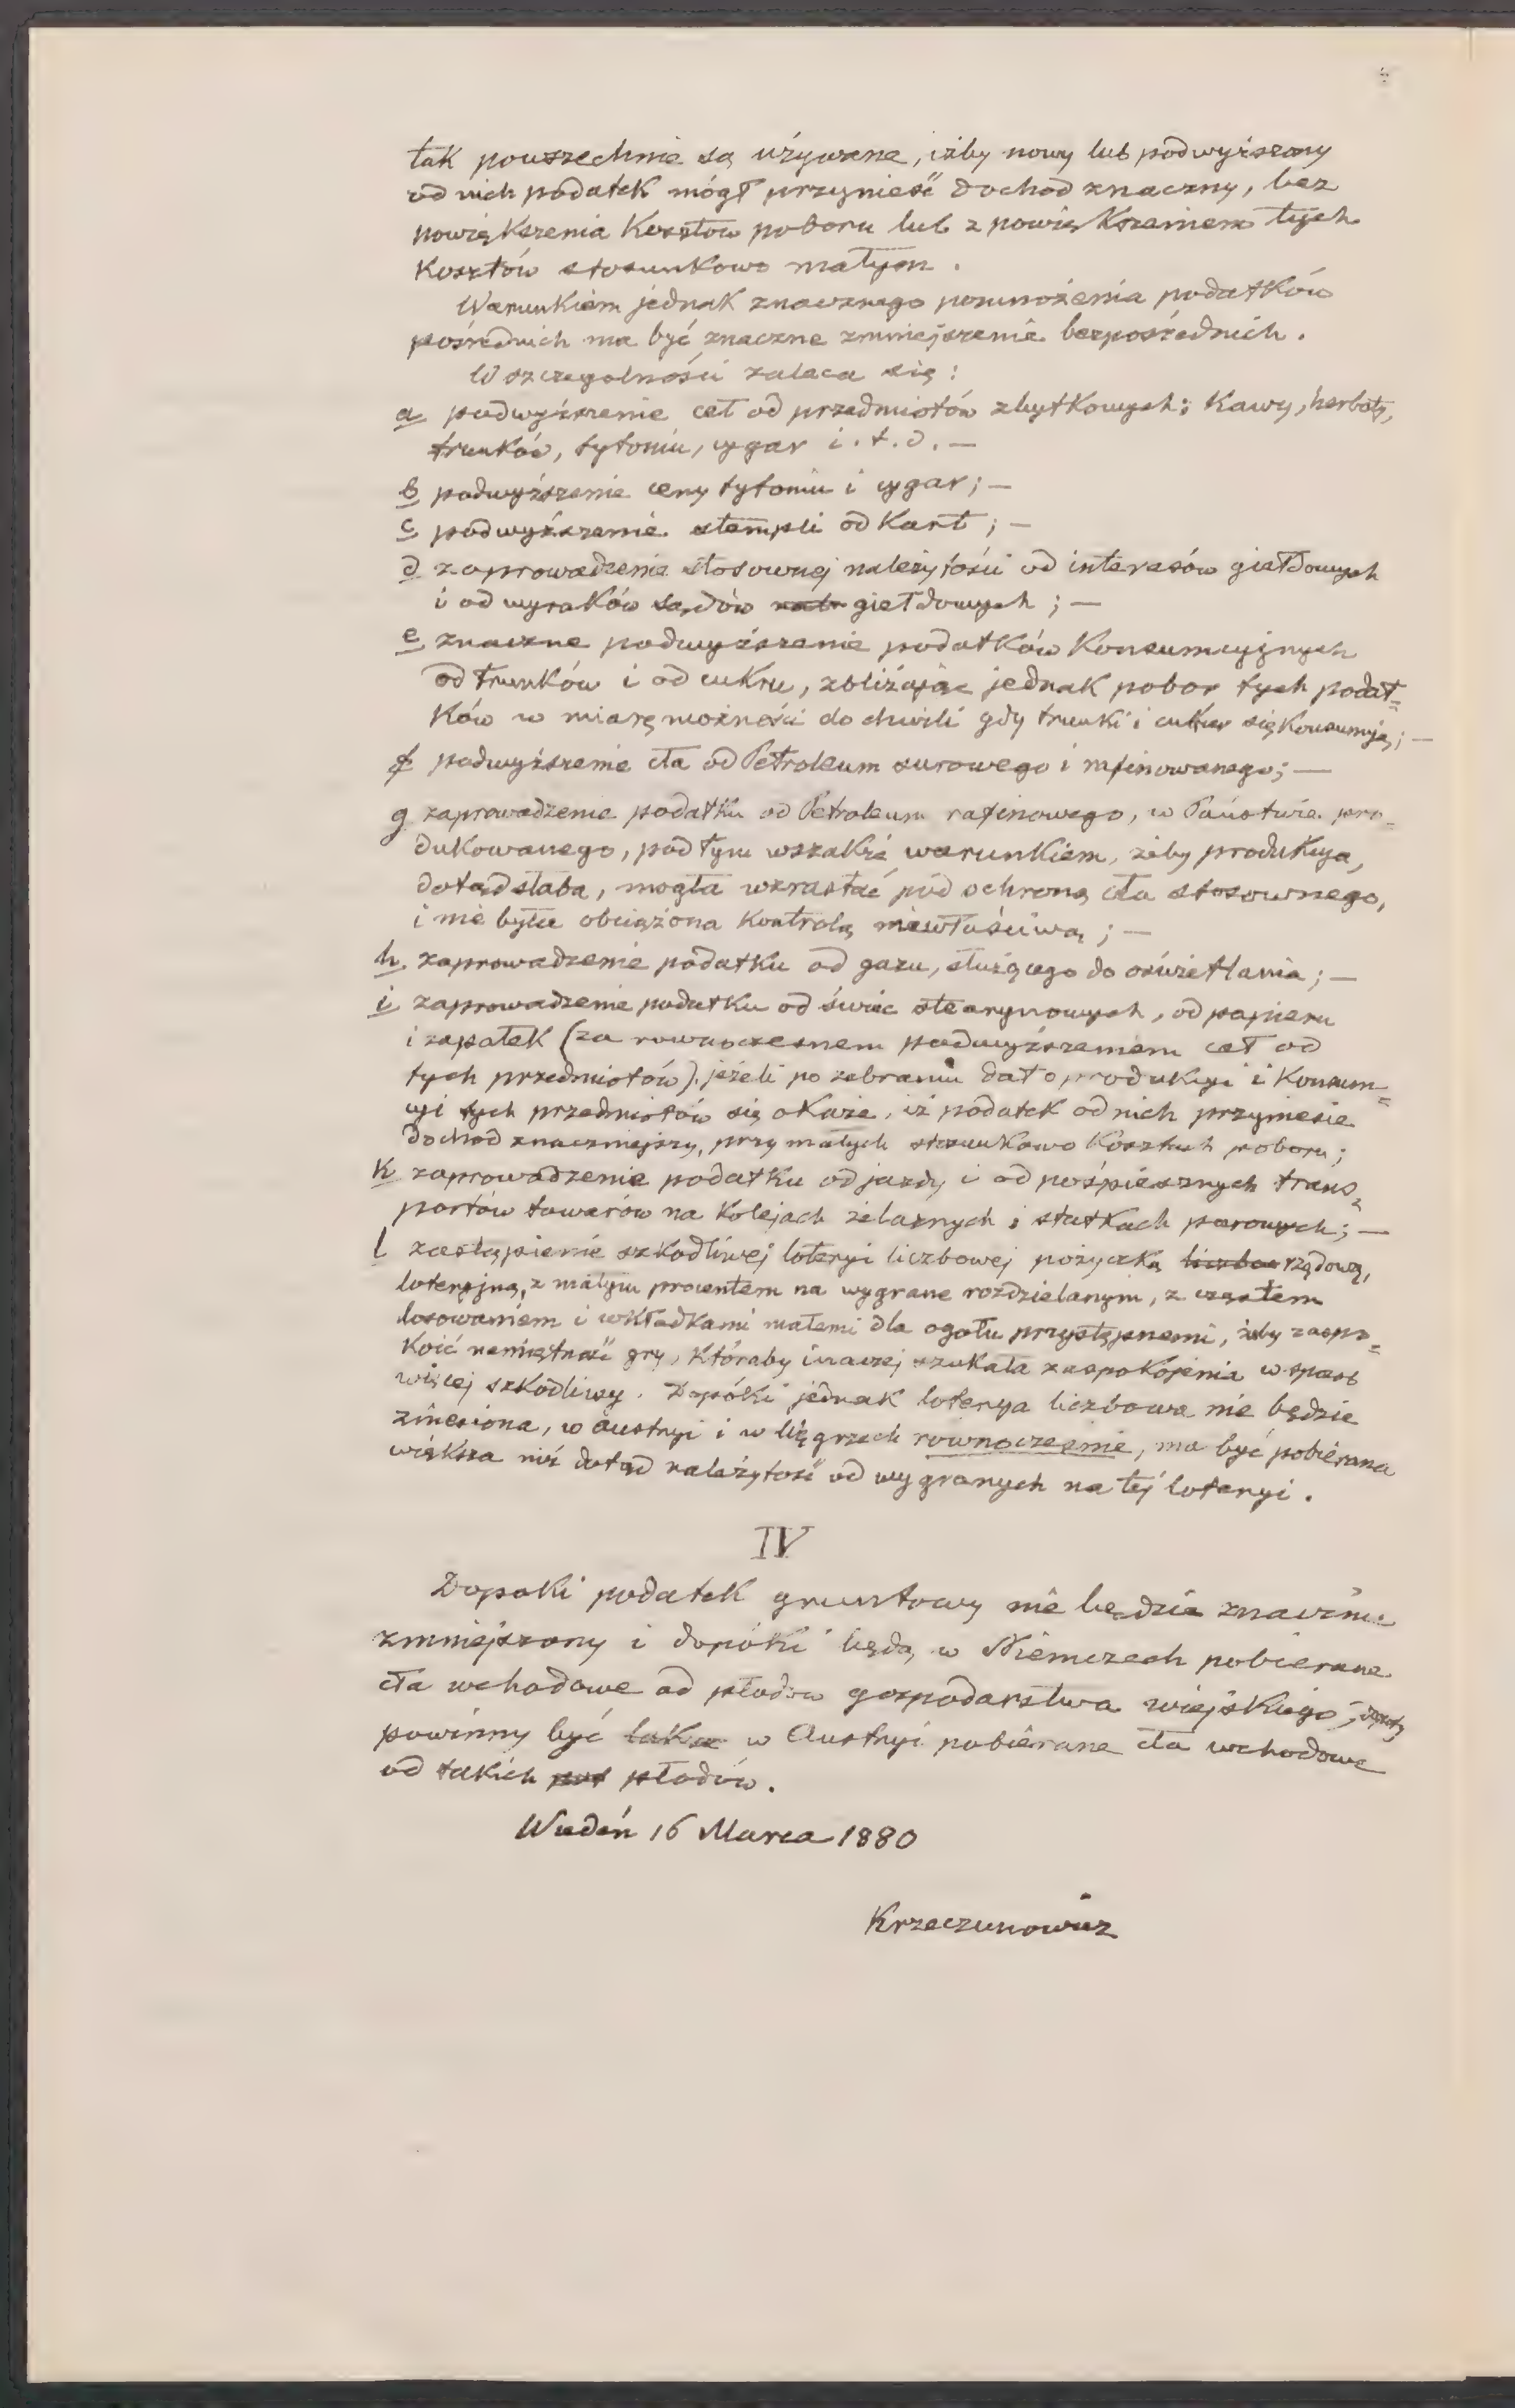 tak powszechnie są używane, iżby nowy lub podwyższony
od nich podatek mógł przynieść dochod znaczny, bez
powiększenia Kosztow poboru lub z powiększeniem tych
Kosztów stosunkowo małym.
Warunkiem jednak znacznego pomnożenia podatków
pośrednich ma być znaczne zmniejszenie bezpośrednich.
W szczegolności zaleca się:
a podwyższenie ceł od przedmiotów zbytkowych: Kawy, herbaty,
trunków, tytoniu, cygar i.t.d. —
b podwyższenie ceny tytoniu i cygar; —
c podwyższenie stempli od Kart; —
d zaprowadzenie stosownej należytości od interesów giełdowych
i od wyroków sądów giełdowych; —
e znaczne podwyższenie podatków Konsumcyjnych
od trunków i od cukru, zbliżając jednak pobor tych podat=
ków w miarę możności do chwili gdy trunki i cukier się Konsumują; —
f podwyższenie cła od Petroleum surowego i rafinowanego; —
g zaprowadzenie podatku od Petroleum rafinowego, w Państwie pro=
dukowanego, pod tym wszakże warunkiem, żeby produkcya,
dotąd słaba, mogła wzrastać pod ochroną cła stosownego,
i nie była obciążona Kontrolą niewłaściwą; —
h zaprowadzenie podatku od gazu, służącego do oświetlania; —
i zaprowadzenie podatku od świec stearynowych, od papieru
i zapałek (za rownoczesnem podwyższeniem ceł od
tych przedmiotów), jeżeli po zebraniu dat o produkcyi i Konsum=
cyi tych przedmiotów się okaże, iż podatek od nich przyniesie
dochod znaczniejszy, przy małych stosunkowo Kosztach poboru;
k zaprowadzenie podatku od jazdy i od pośpiesznych trans=
portów towarów na Kolejach żelaznych i statkach parowych; —
l zastąpienie szkodliwej loteryi liczbowej pożyczką rządową,
loteryjną, z małym procentem na wygrane rozdzielanym, z częstem
losowaniem i wkładkami małemi dla ogołu przystępnemi, żeby zaspo=
Koić namiętność gry, Któraby inaczej szukała zaspokojenia w sposob
więcej szkodliwy. Dopóki jednak loterya liczbowa nie będzie
zniesiona, w Austryi i w Węgrzech rownocześnie, ma być pobierana
większa niż dotąd należytość od wygranych na tej loteryi.
IV
Dopoki podatek gruntowy nie będzie znacznie
zmniejszony i dopóki będą w Niemczech pobierane
cła wchodowe od płodów gospodarstwa wiejskiego,
powinny być w Austryi pobierane cła wchodowe
od takich płodów.
Wiedeń 16 Marca 1880
Krzeczunowicz